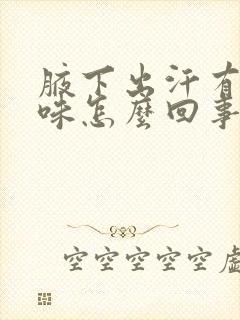 腋下出汗有
味怎麼回事
空空空空空虛